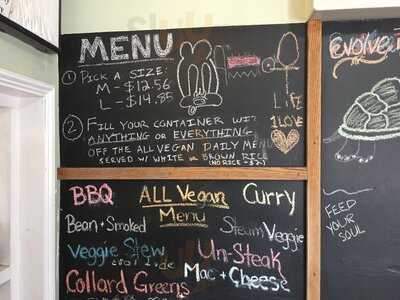 MENU
① PICK A SIZE:
M - $12.56
L - $14.85
② FILL YOUR CONTAINER W/
ANYTHING OR EVERYTHING
OFF THE ALL VEGAN DAILY MENU
SERVED W/ WHITE OR BROWN RICE
(NO RICE + $2)
LIFE
1 LOVE
BBQ
Bean + Smoked
Veggie Stew
Collard Greens
ALL Vegan
Menu
Curry
Steam Veggie
Un-Steak
Mac + Cheese
Evolve
FEED
YOUR
SOUL